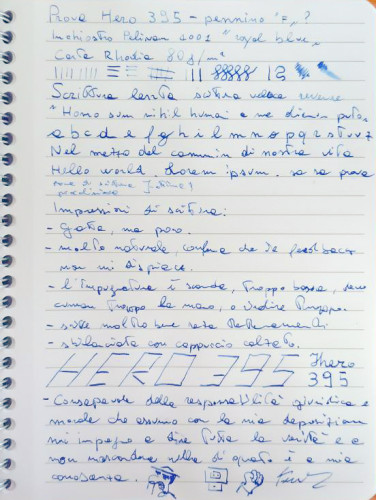 Prova Hero 395 - pennino "F" ?
Inchiostro Pelikan 4001 "royal blue"
Carta Rhodia 80g/m²
Scrittura lenta scrittura veloce reverse
"Homo sum nihil humani a me alienum puto"
a b c d e f g h i l m n o p q r s t u v z
Nel mezzo del cammin di nostra vita
Hello world. Lorem ipsum. sa sa prova
Impressioni di scrittura:
- Gratta, ma poco.
- molto naturale, conferma che dà feedback
non mi dispiace.
- l'impugnatura è tonda, troppo bassa, devo
troppo la mano, o
- scrive molto bene
- sbilanciata con cappuccio calzato.
HERO 395 Hero
395
- Consapevole della responsabilità giuridica e
morale che assumo con la mia deposizione
mi impegno a dire tutta la verità e a
non nascondere nulla di quanto è a mia
conoscenza.